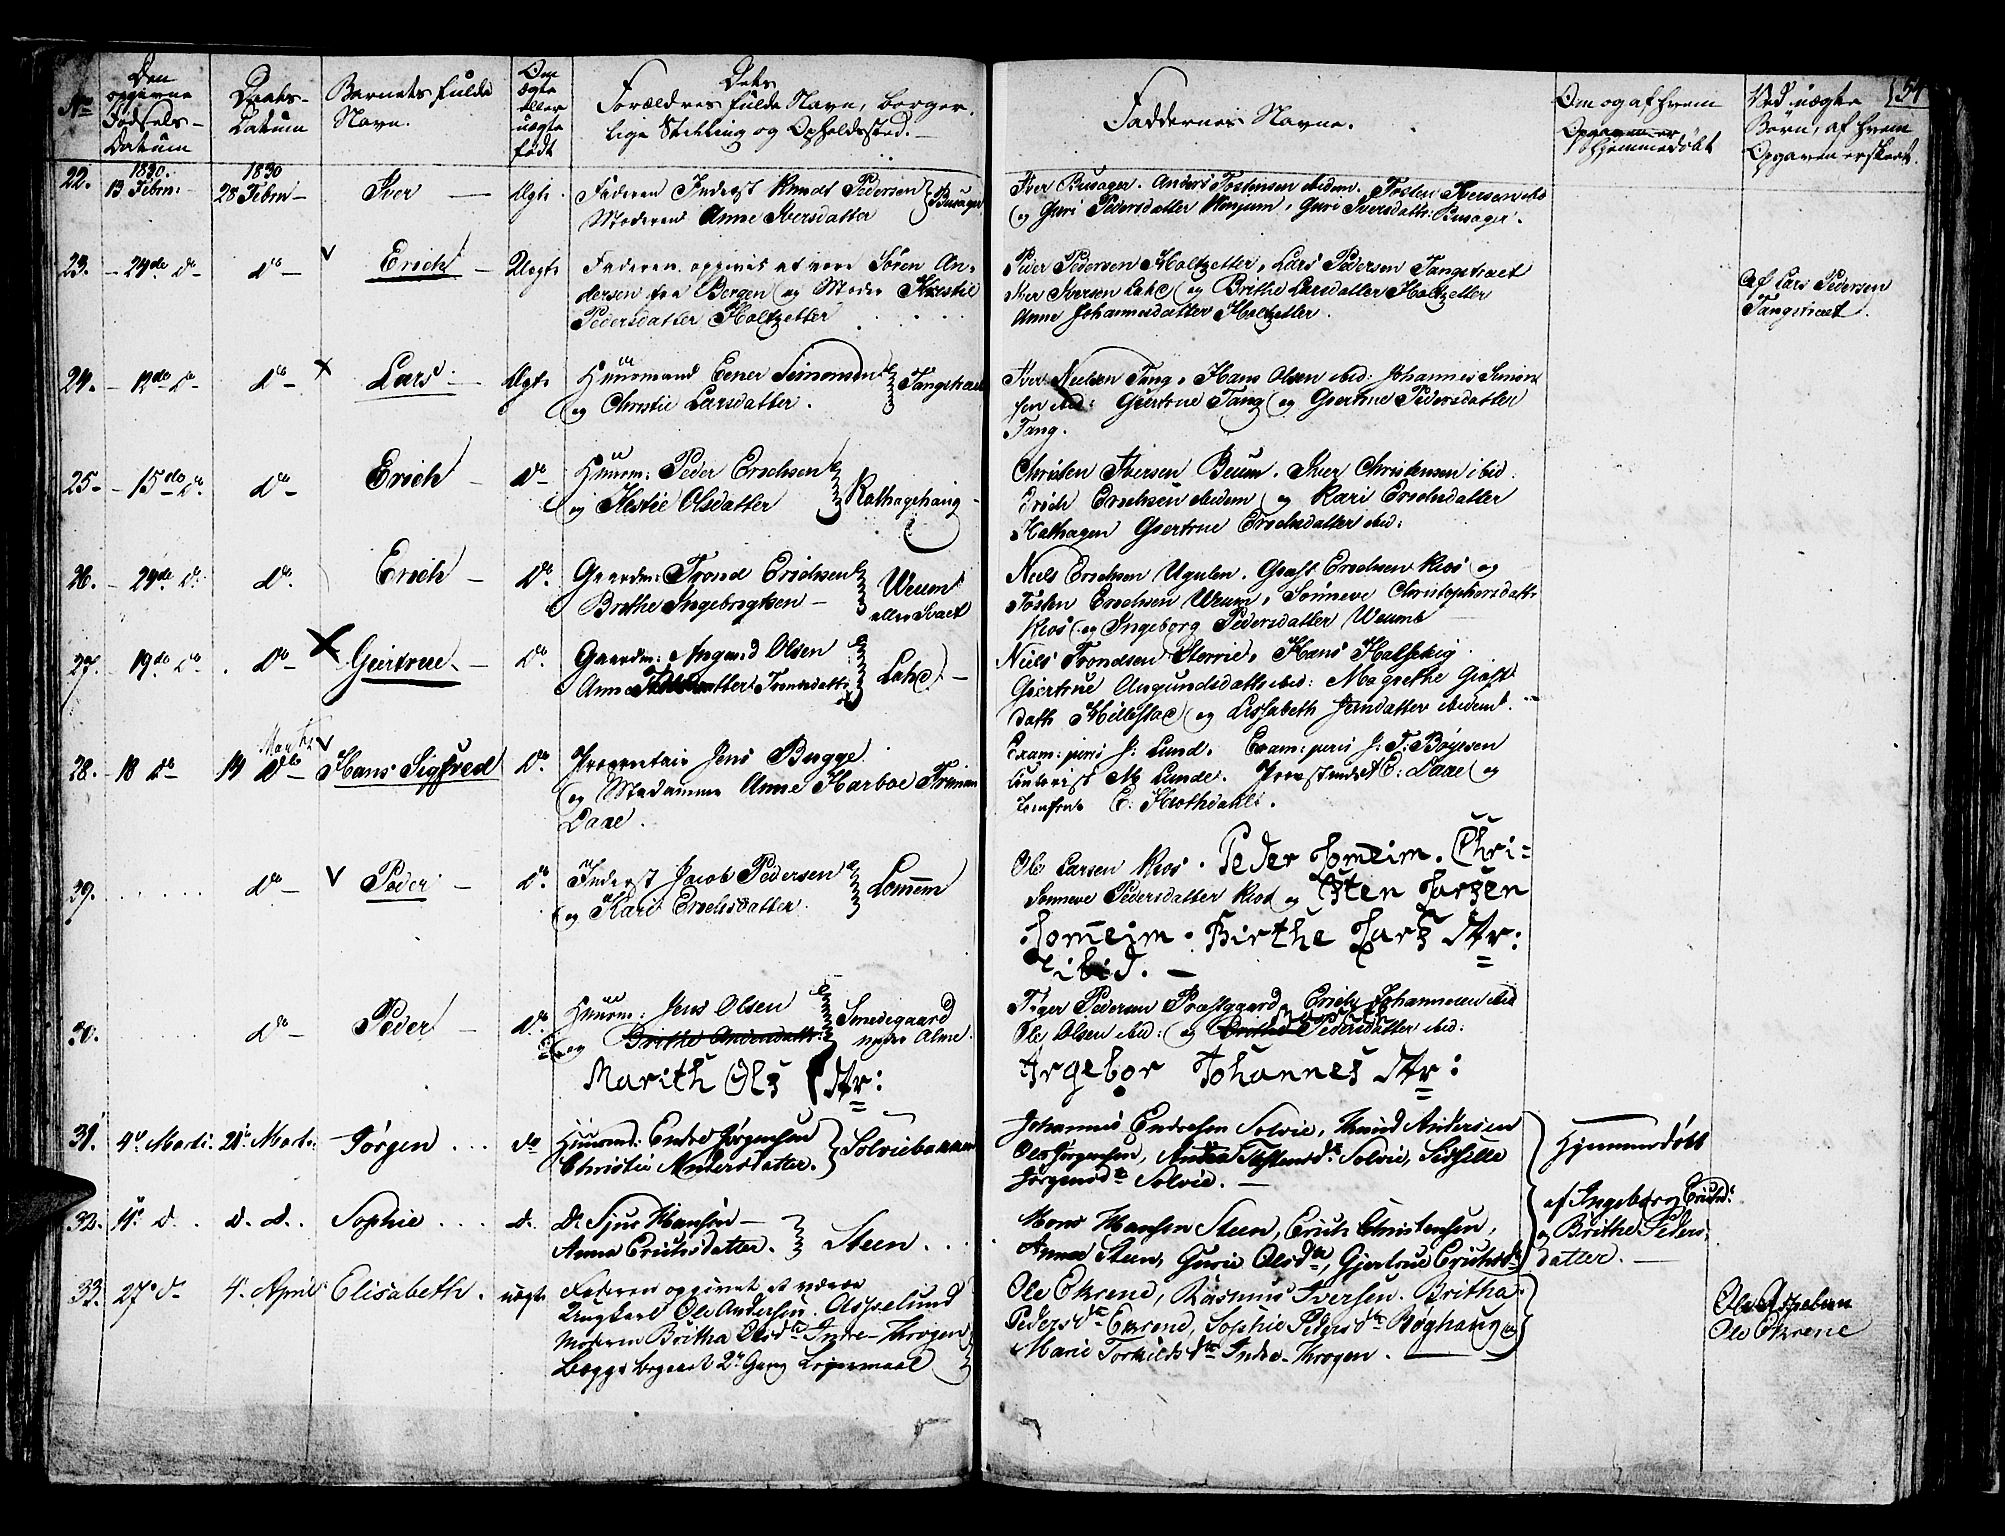 No
Den opgivne Fødsels-Datum
Daabs-Datum
Barnets fulde Navn.
Om ægte eller uægte født
Dets Forældres fulde Navn, borger-
lige Stilling og Opholdssted.
Faddernes Navne.
Om og af hvem
Opgaven er
hjemmedøbt
Ved uægte
Børn, af hvem
Opgaven er skeet.
54
22. 1830. 13 Febru: 1830 28 Febru – Iver – Ægte. Faderen Inderst Knud Pedersen } Busager
Moderen Anne Iversdatter
Iver Busager. Anders Tostensen ibidem. Tosten Iversen ibd
og Guri Pedersdatter Kinjum, Guri Iversdatter Busager.
23. – 24de do do – Erich – Uegte Faderen opgives at være Søren An-
dersen fra Bergen og Moder Kirstie
Pedersdatter Holtzetter
Peder Pedersen Holtzetter, Lars Pedersen Tangstraet
Iver Iversen Lahe og Brithe Larsdatter Holtzetter
Anne Johannesdatter Holtzetter.
Af Lars Pedersen
Tangstraet.
24. – 12de do do – Lars – Ægte Huusmand Ener Simonsen } Tangstraet
og Christie Larsdatter.
Iver Nielsen Tang, Hans Olsen ibid: Johannes Simon
sen ibid: Giertrue Tang og Giertrue Pedersdatter
Tang.
25. – 15de do do – Erich – do Huusm: Peder Erichsen } Rathagehaug
og Kirstie Olsdatter
Christen Iversen Beum. Iver Christensen ibid.
Erich Erichsen ibidem og Kari Erichsdatter
Hathagen Giertrue Erichsdatter ibid:
26. – 24de do do. Erich – do. Gaardm: Trond Erichsen } Weum
Brithe Ingebrigtsen – eller Svaet
Niels Erichsen Ugulen. Grast Erichsen Kros og
Tosten Erichsen Weum, Sønneve Christophersdatter
Kros og Ingeborg Pedersdatter Weum
27. – 19de do . do – Giertrue. – do. Gaardm: Angund Olsen } Lahe –
Anne Trondsdatter
Niels Trondsen Sterrie, Hans Halsehig.
Giertrue Angundsdatter ibid: Magrethe Giast
datter Hillestad og Lissabeth Jensdatter ibidem.
28. – 18 do 14 Martz do – Hans Sigfred do. Procurator Jens Bugge
og Madamme Anne Harboe Frimann
Daae.
Exam: juris J: Lund. Exam: juris J: T: Bøyesen
M Lunde. E: Daae og
Jomfrue C: Krohdahl.
29. . . . . . do – Peder – do. Inderst Jacob Pedersen } Lomem
og Kari Erichsdatter.
Ole Larsen Kros. Peder Lomeim. Chri=
Sønneve Pedersdatter Kros og Sten Larsen
Lomeim. Birthe Lars Dtr:
ibid. –
30. . . . . do – Peder – do. Huusm: Jens Olsen } Smedegaard
og Brithe Andersdatter nedre Alme.
Marith Ols Dtr:
Tøger Pedersen Præstgaard, Erich Johannesen ibid
Ole Olsen ibid: og Pedersdatter ibid:
Ingebor Johannes Dtr:
31. 4de Marti. 21de Marti. Jørgen . . . do Huusmd: Endre Jørgensen } Solviebakken
Christie Andersdatter.
Johannes Endresen Solvie, Knud Andersen
Ole Jørgensen, Anna Tostensdtr Solvie, Sidselle
Jørgensdtr Solvie. –
Hjemmedøbt
32. 11de d. . d. d. . Sophie . . . d. Do Sjur Hansøn – } Steen . .
Anna Erichsdatter.
Mons Hansen Steen, Erich Christensen,
Anna Steen, Gurie Olsdtr, Gjertrue Erichsdtr
af Ingeborg Erichsd:
og Brithe Peders-
datter. –
33. 27de do 4de April Elisabeth. uægte Faderen opgivet at være
Ungkarl Ole Andersen Asperlund
Moderen Britha Olsdtr Indre-Krogen
begges begaaet 2den Gang Leiermaal
Ole Ekrene, Rasmus Iversen. Britha
Pedersdtr Ekrene, Sophie Pedersdtr Røghaug og
Marie Torkildsdtr Indre-Krogen. –
Ole Asperlun
Ole Ekrene